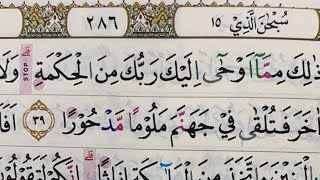 سُبْحٰنَ الَّذِيْ ١٥
٢٨٦
ذٰلِكَ مِمَّآ اَوْحٰٓى اِلَيْكَ رَبُّكَ مِنَ الْحِكْمَةِ ۗ وَلَا
STOP
اٰخَرَ فَتُلْقٰى فِيْ جَهَنَّمَ مَلُوْمًا مَّدْحُوْرًا ٣٩ اَفَا